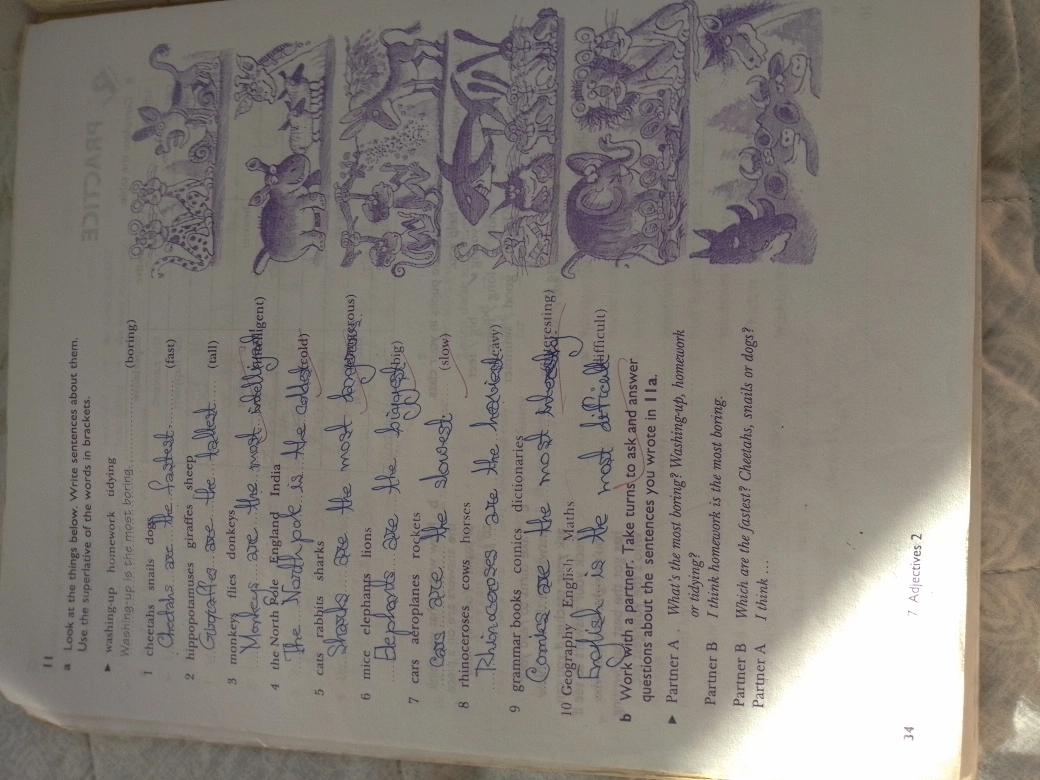 11
a Look at the things below. Write sentences about them.
Use the superlative of the words in brackets.
► washing-up homework tidying
Washing-up is the most boring. (boring)
1 cheetahs snails dogs
Cheetahs are the fastest. (fast)
2 hippopotamuses giraffes sheep
Giraffes are the tallest (tall)
3 monkeys flies donkeys
Monkeys are the most intelligent)
4 the North Pole England India
The North pole is the coldest (cold)
5 cats rabbits sharks
Sharks are the most
6 mice elephants lions
Elephants are the biggest (big)
7 cars aeroplanes rockets
Cars are the slowest. (slow)
8 rhinoceroses cows horses
Rhinocooses are the
9 grammar books comics dictionaries
Comics are the most
10 Geography English Maths
English is the most difficult difficult)
b Work with a partner. Take turns to ask and answer
questions about the sentences you wrote in 11a.
► Partner A What's the most boring? Washing-up, homework
or tidying?
Partner B I think homework is the most boring.
Partner B Which are the fastest? Cheetahs, snails or dogs?
Partner A I think ...
34 7 Adjectives 2
PRACTICE